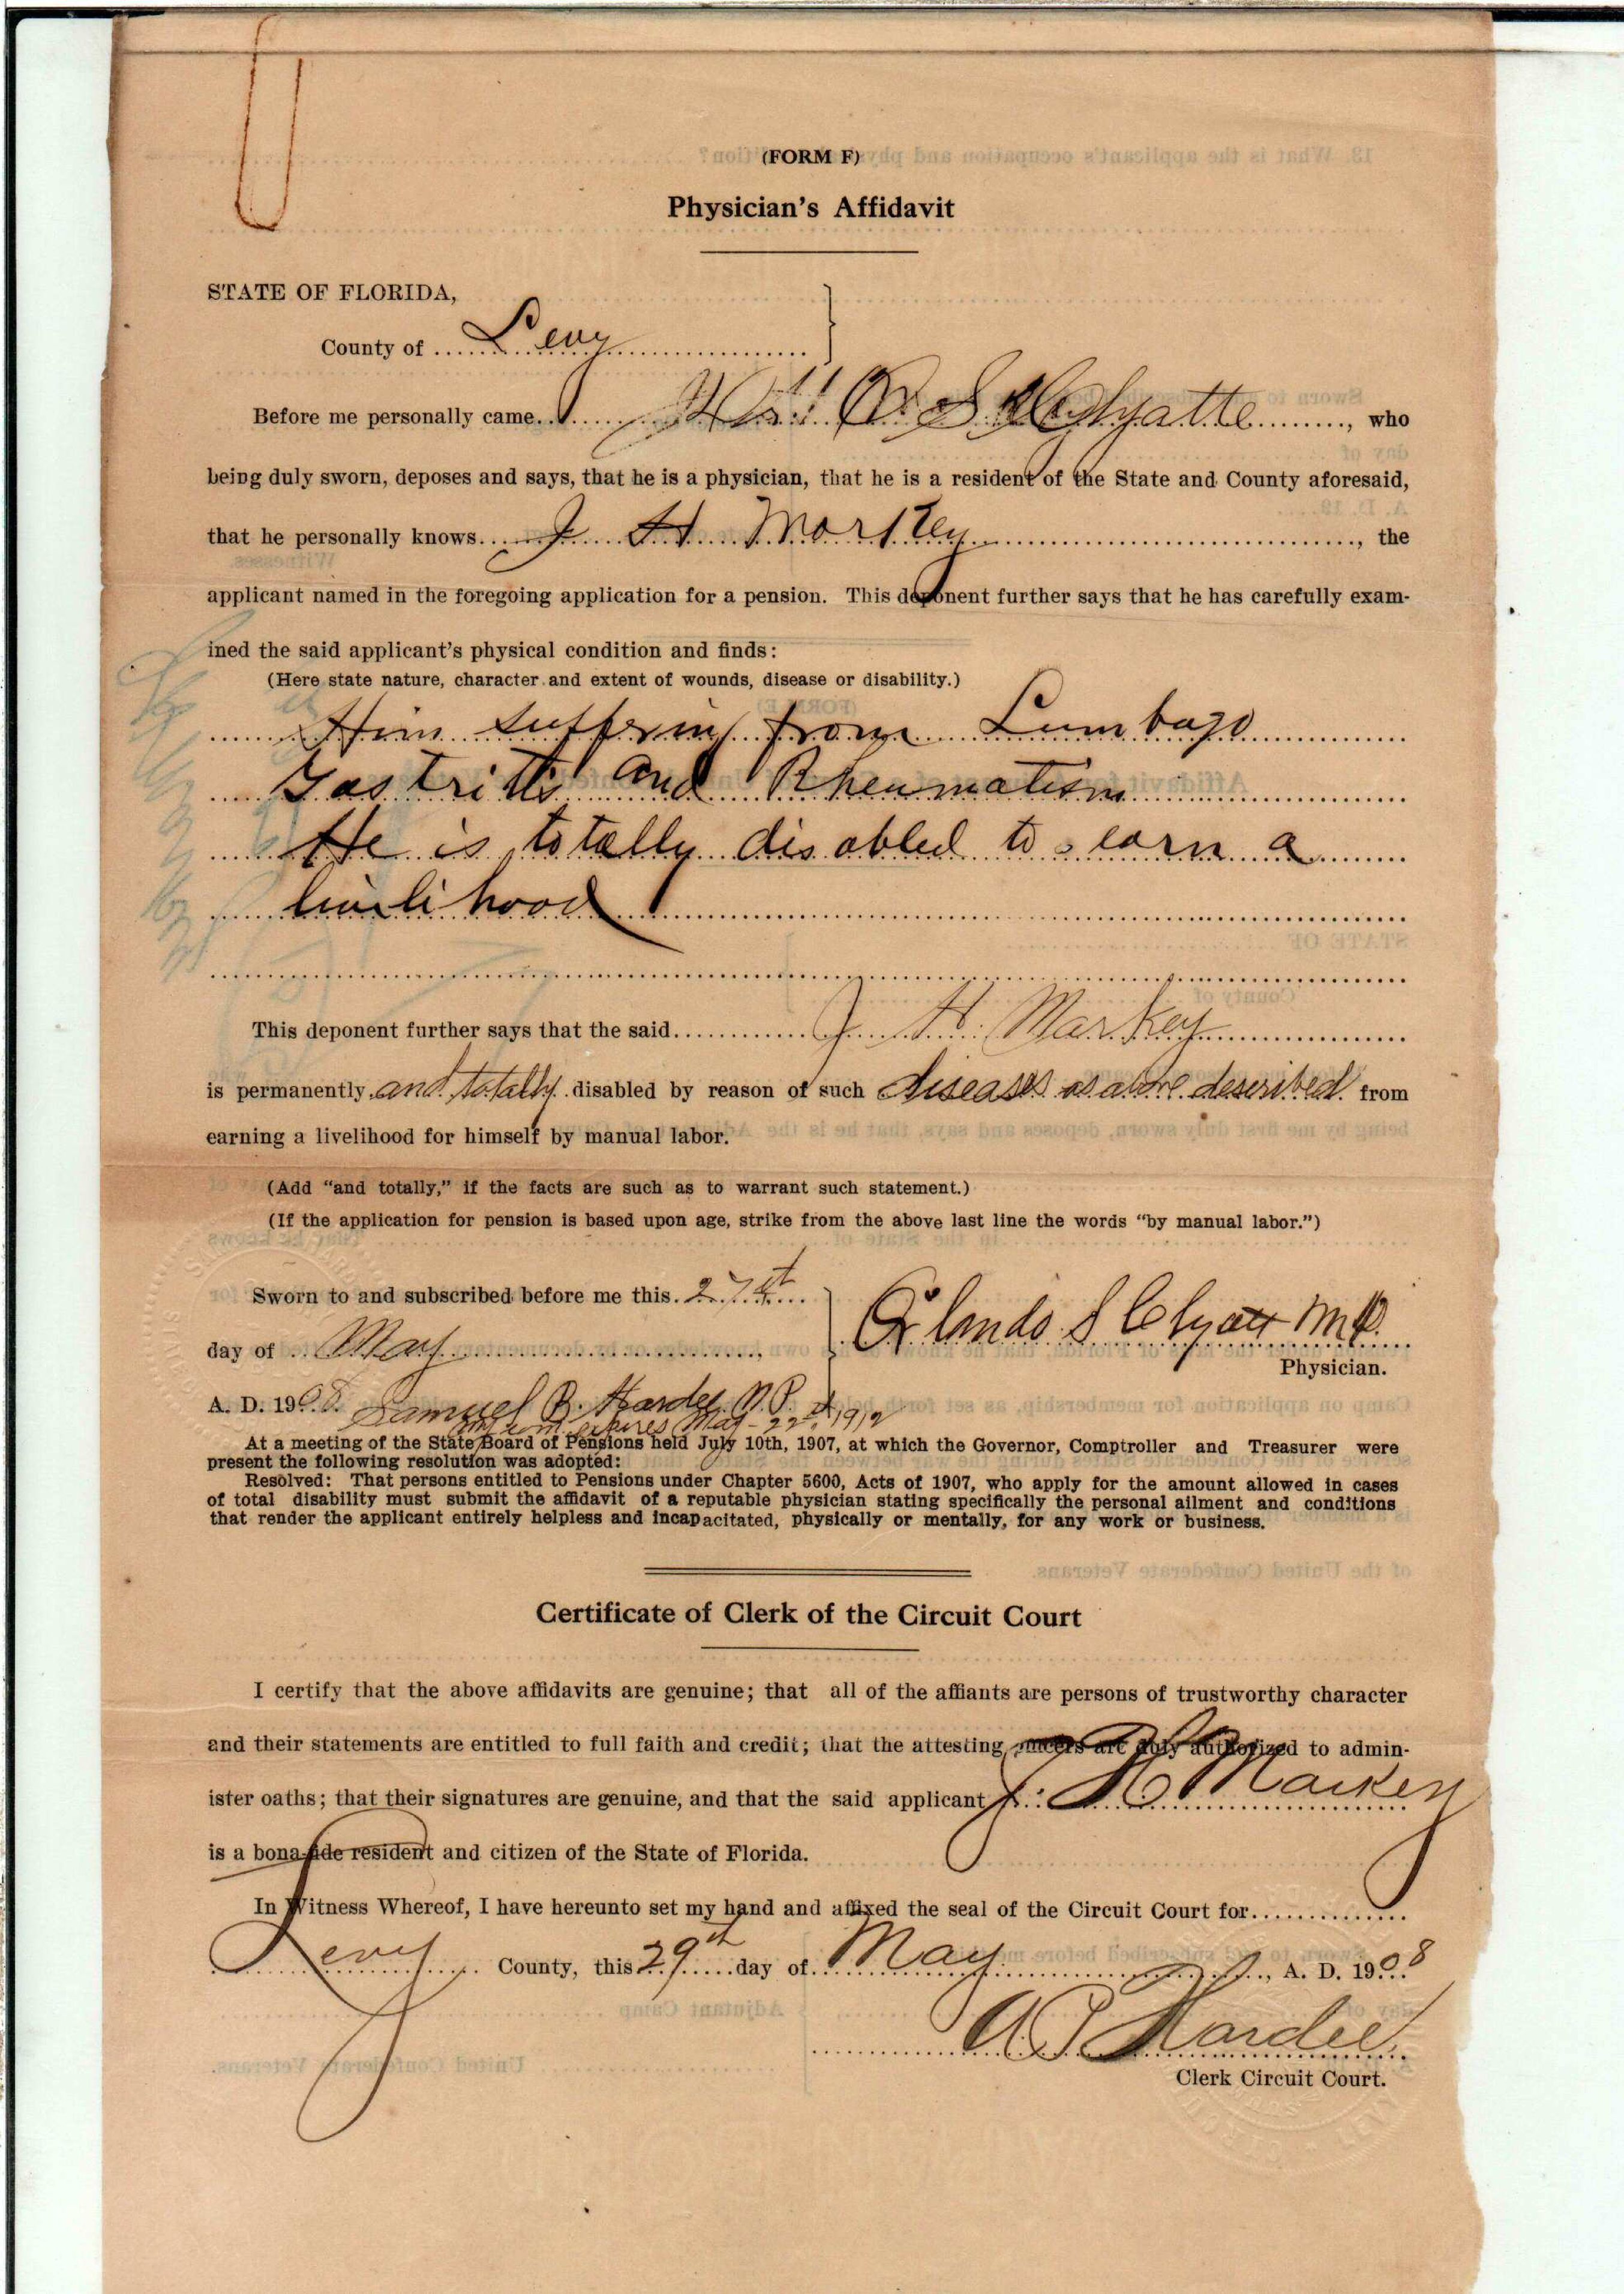 (FORM F)
Physician's Affidavit
STATE OF FLORIDA,
County of Levy
Before me personally came O. S. Clyatte, who
being duly sworn, deposes and says, that he is a physician, that he is a resident of the State and County aforesaid,
that he personally knows J H Markey, the
applicant named in the foregoing application for a pension. This deponent further says that he has carefully exam-
ined the said applicant's physical condition and finds:
(Here state nature, character and extent of wounds, disease or disability.)
Him suffering from Lumbago
Gastritis and Rheumatism
He is totally disabled to earn a
livelihood
This deponent further says that the said J H. Markey
is permanently and totally disabled by reason of such diseases as above described from
earning a livelihood for himself by manual labor.
(Add "and totally," if the facts are such as to warrant such statement.)
(If the application for pension is based upon age, strike from the above last line the words "by manual labor.")
Sworn to and subscribed before me this 27th
day of May,
A. D. 1908. Samuel B. Hardee N.P.
my com. expires May - 22nd 1912
Orlando S Clyatt M.D.
Physician.
At a meeting of the State Board of Pensions held July 10th, 1907, at which the Governor, Comptroller and Treasurer were
present the following resolution was adopted:
Resolved: That persons entitled to Pensions under Chapter 5600, Acts of 1907, who apply for the amount allowed in cases
of total disability must submit the affidavit of a reputable physician stating specifically the personal ailment and conditions
that render the applicant entirely helpless and incapacitated, physically or mentally, for any work or business.
Certificate of Clerk of the Circuit Court
I certify that the above affidavits are genuine; that all of the affiants are persons of trustworthy character
and their statements are entitled to full faith and credit; that the attesting officers are duly authorized to admin-
ister oaths; that their signatures are genuine, and that the said applicant J. H Markey
is a bona-fide resident and citizen of the State of Florida.
In Witness Whereof, I have hereunto set my hand and affixed the seal of the Circuit Court for
Levy County, this 29th day of May, A. D. 1908
Hardee
Clerk Circuit Court.